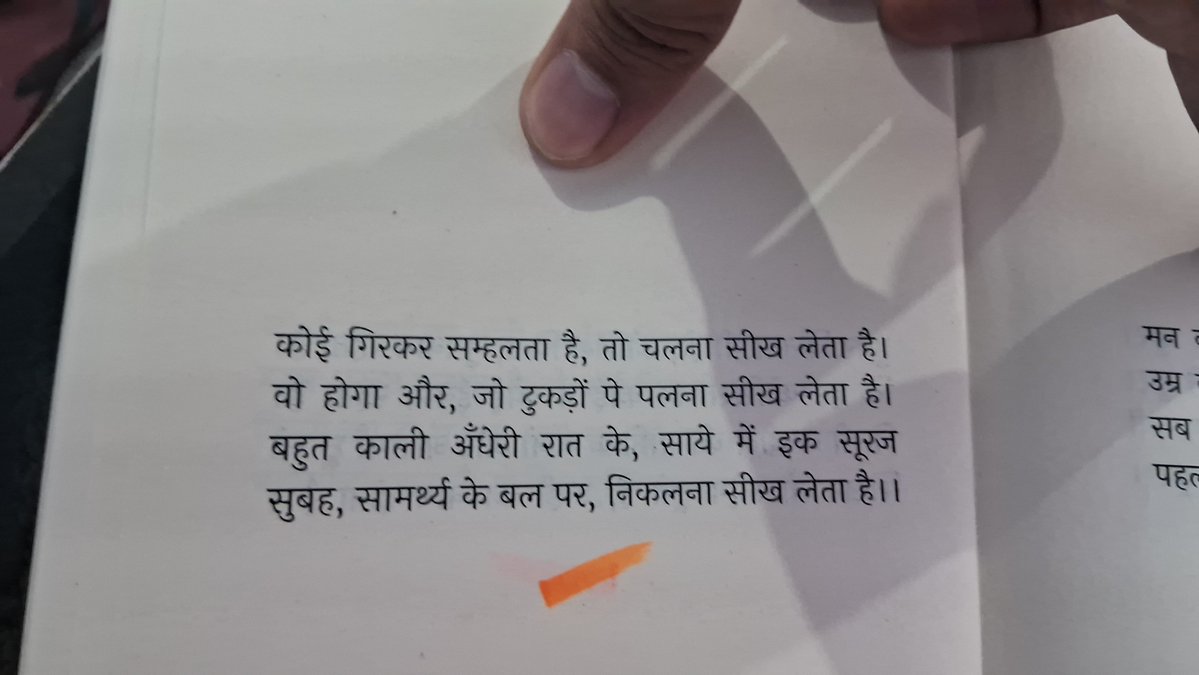 कोई गिरकर सम्हलता है, तो चलना सीख लेता है।
वो होगा और, जो टुकड़ों पे पलना सीख लेता है।
बहुत काली अँधेरी रात के, साये में इक सूरज
सुबह, सामर्थ्य के बल पर, निकलना सीख लेता है।।
मन
उम्र
सब